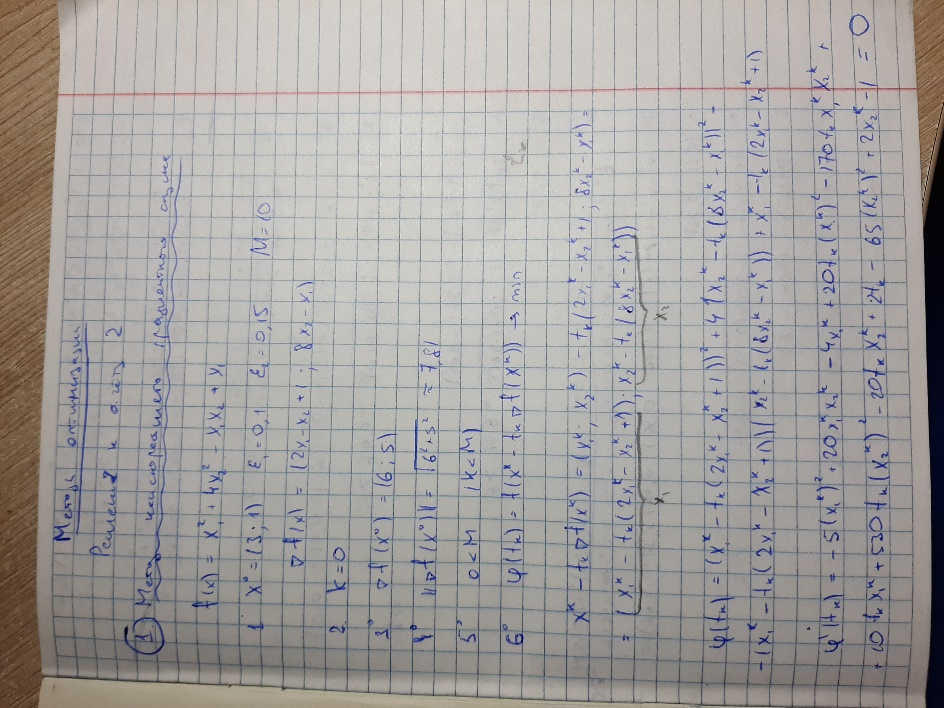 Методы оптимизации
Решения к дз 2
① Метод наискорейшего градиентного спуска
f(x) = x₁² + 4x₂² - x₁x₂ + x₁
1 x⁰ = (3; 1) ε₁ = 0,1 ε₂ = 0,15 M = 10
∇f(x) = (2x₁ - x₂ + 1; 8x₂ - x₁)
2 k = 0
3° ∇f(x⁰) = (6; 5)
4° ||∇f(x⁰)|| = √(6² + 5²) ≈ 7,81
5° 0 < M (k < M)
6° φ(tₖ) = f(xᵏ - tₖ∇f(xᵏ)) → min
xᵏ - tₖ∇f(xᵏ) = (x₁ᵏ; x₂ᵏ) - tₖ(2x₁ᵏ - x₂ᵏ + 1; 8x₂ᵏ - x₁ᵏ) =
= (x₁ᵏ - tₖ(2x₁ᵏ - x₂ᵏ + 1); x₂ᵏ - tₖ(8x₂ᵏ - x₁ᵏ))
x₁ x₂
φ(tₖ) = (x₁ᵏ - tₖ(2x₁ᵏ - x₂ᵏ + 1))² + 4(x₂ᵏ - tₖ(8x₂ᵏ - x₁ᵏ))² -
- (x₁ᵏ - tₖ(2x₁ᵏ - x₂ᵏ + 1))(x₂ᵏ - tₖ(8x₂ᵏ - x₁ᵏ)) + x₁ᵏ - tₖ(2x₁ᵏ - x₂ᵏ + 1)
φ'(tₖ) = -5(x₁ᵏ)² + 20x₁ᵏx₂ᵏ - 4x₁ᵏ + 20tₖ(x₁ᵏ)² - 170tₖx₁ᵏx₂ᵏ +
+ 10tₖx₁ᵏ + 530tₖ(x₂ᵏ)² - 20tₖx₂ᵏ + 2tₖ - 65(x₂ᵏ)² + 2x₂ᵏ - 1 = 0